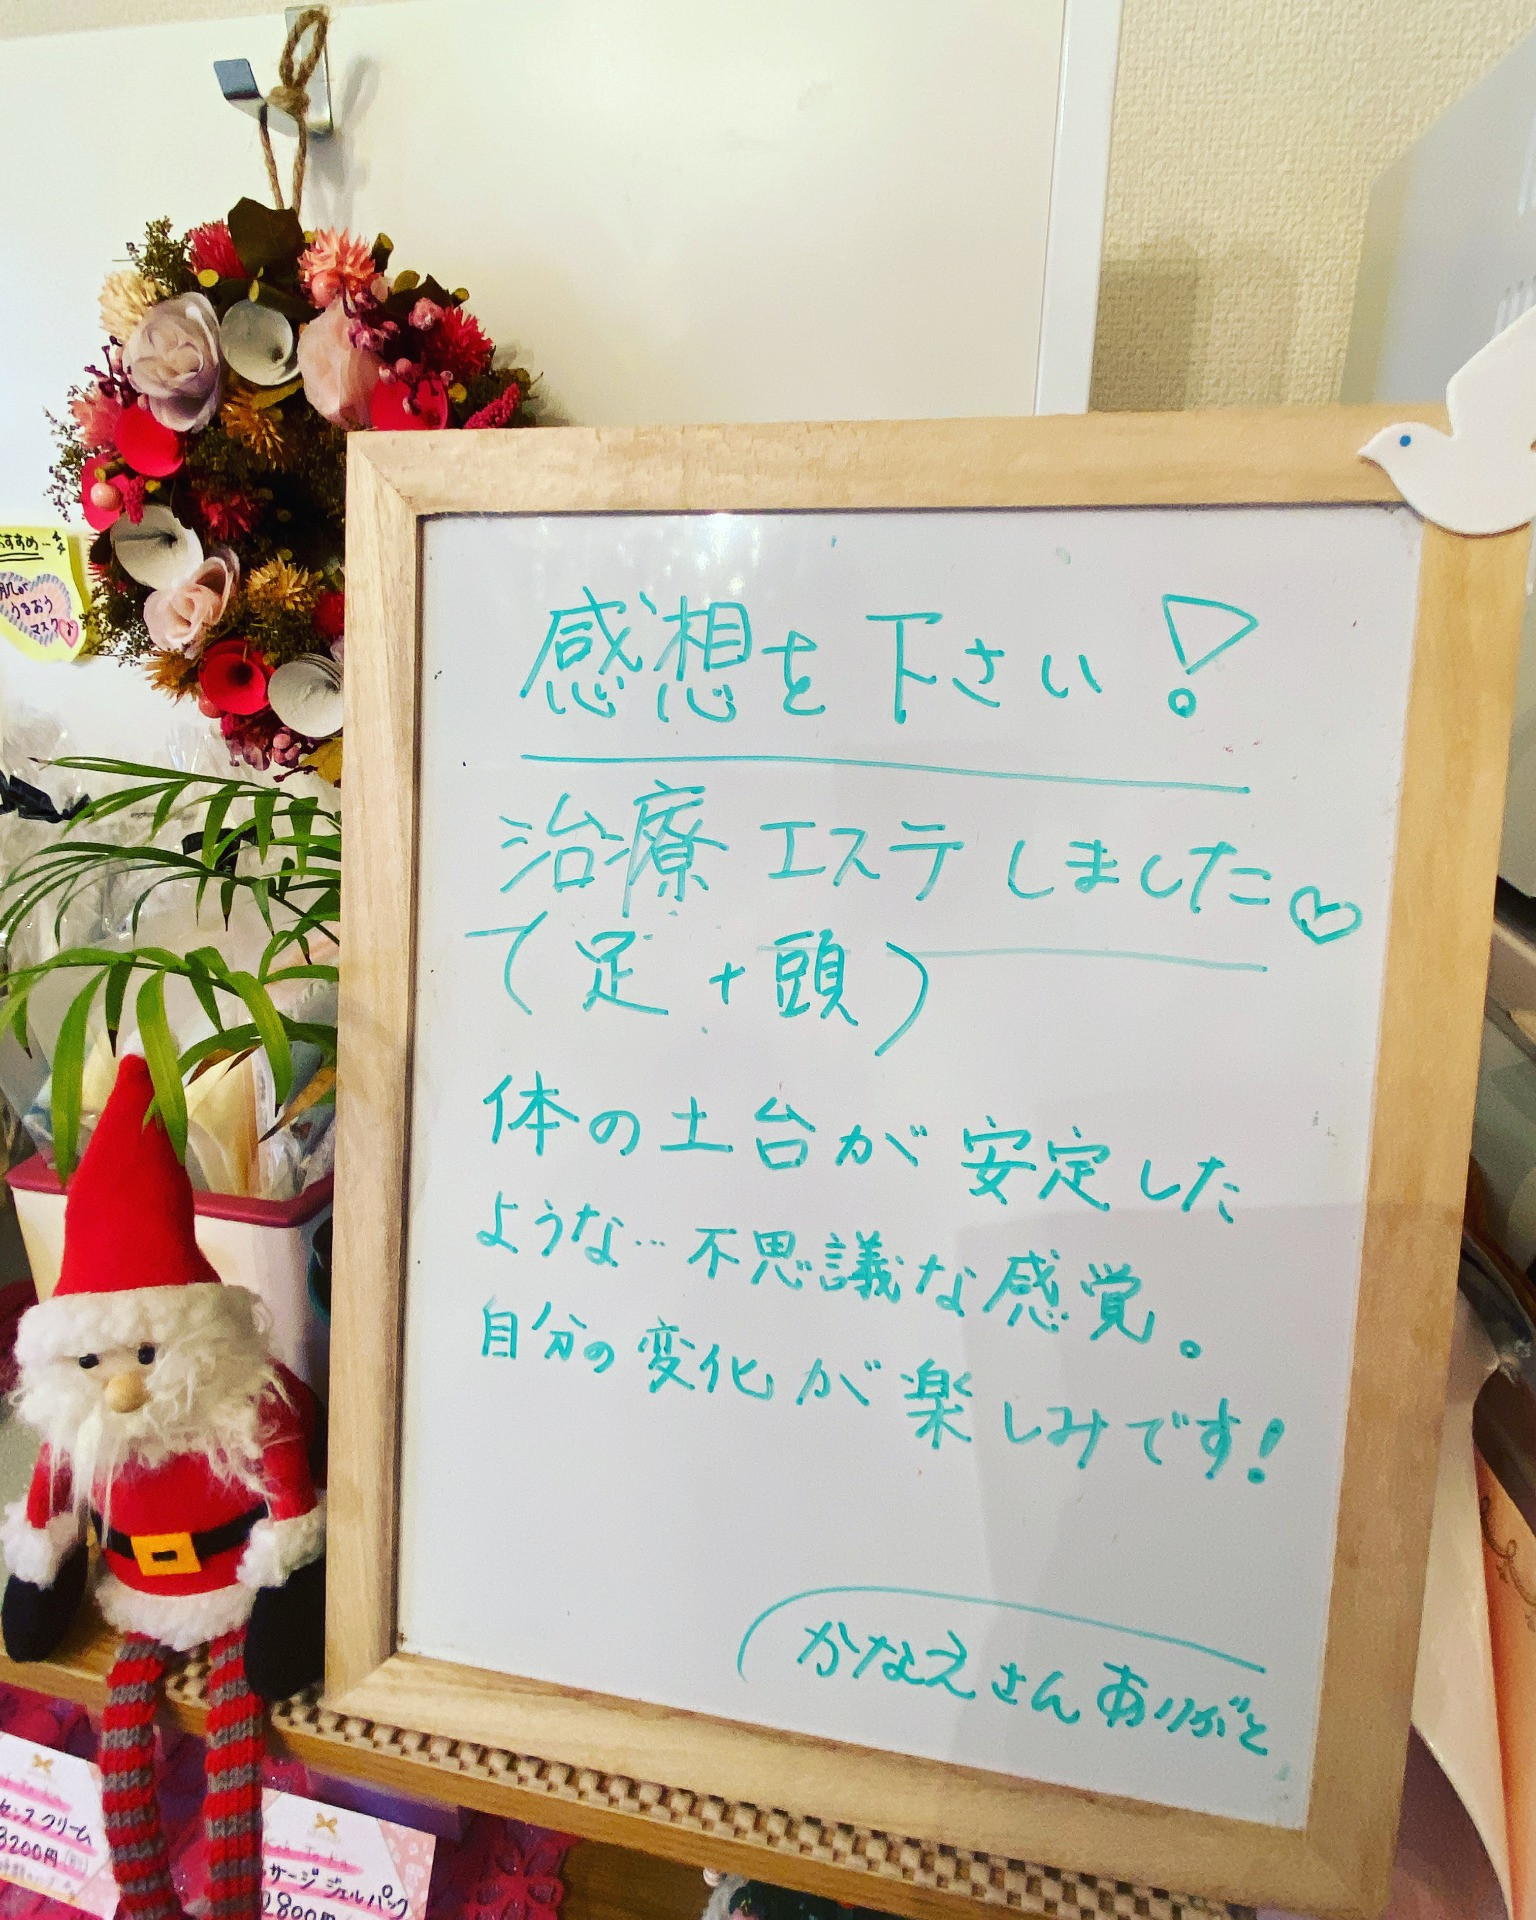 感想を下さい!
治療エステしました♡
(足+頭)
体の土台が安定した
ような…不思議な感覚。
自分の変化が楽しみです!
かなえさんありがと
おすすめ…
肌が
うるおう
マスク♪
センスクリーム
3200円
サージジェルパック
2800円